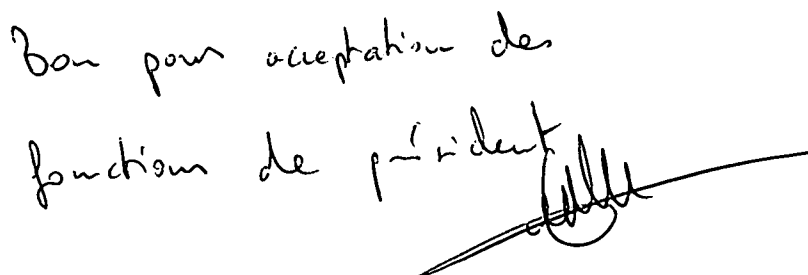 Bon pour acceptation des
fonctions de président